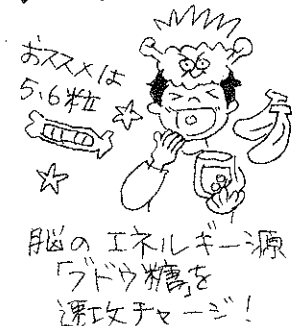 おススメは
5、6粒
脳のエネルギー源
「ブドウ糖」を
速攻チャージ!